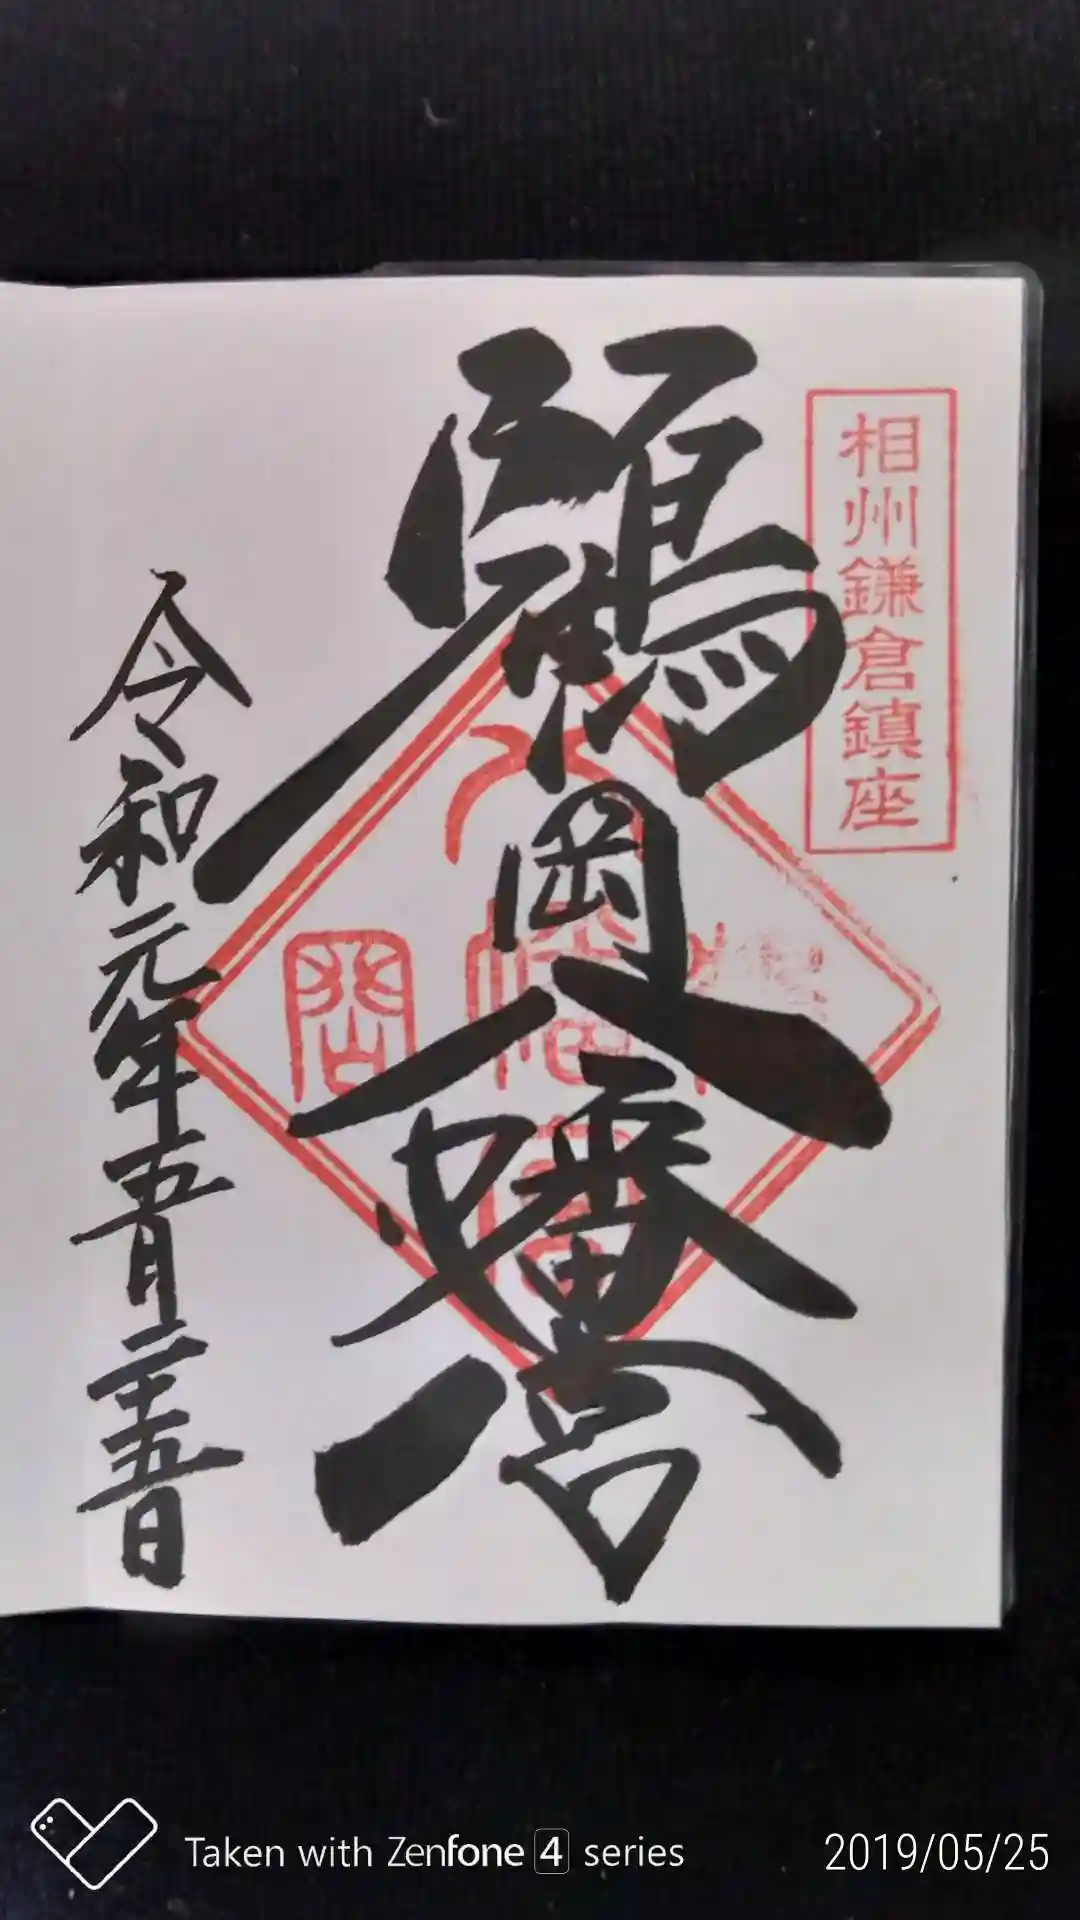 相州鎌倉鎮座
鶴岡八幡宮
令和元年五月二十五日
Taken with Zenfone 4 series
2019/05/25